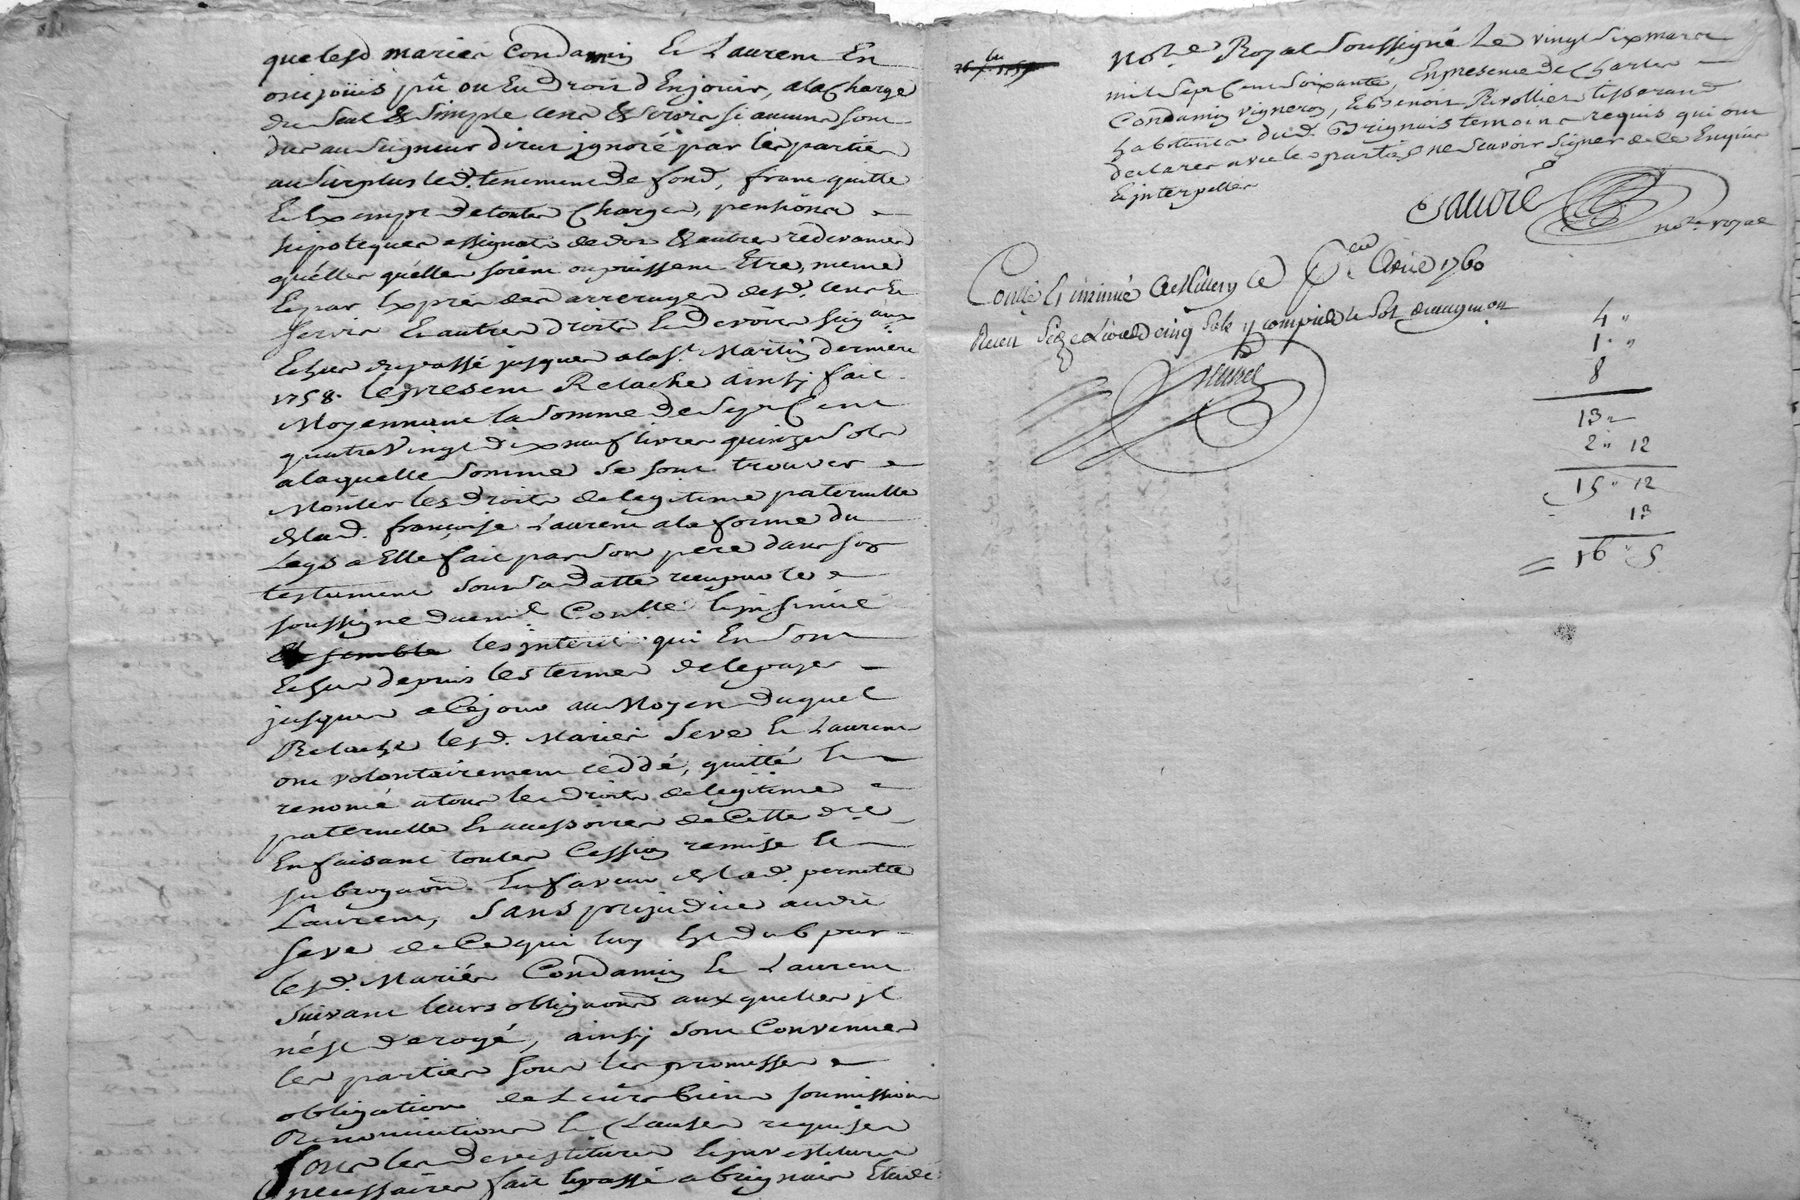 quelesd mariés Condamin & Laurent En
ont joüis jpû ou Eu droit d'Enjouir, ala Charge
du seul & Simple cens & servis si aucuns sont
dus au Seigneur direct ignoré par les parties
au surplus led. tenement de fond, franc quitte
& Exempt de toutes Charges, pensions
hipoteques assignats de dot & autres redevances
quelles quelles soient ou puissent Etre, meme
& par Exprès des arrerages desd. cens &
servis & autres droits & devoirs seigaux
Echus du passé jusques a la st. Martin derniere
1758. le present Relache ainsj fait
Moyennant la somme de Sept Cent
quatre Vingt dix neuf livres quinze sols
a laquelle somme se sont trouvés
Monter les droits de legitime paternelle
de lad. françoise Laurent a la forme du
Legs a Elle fait par son pere dans son
testament sous sa datte reçu par le
soussigné duemt. Contllé & jnsinué
Ensemble les jnterêt qui En sont
Echus depuis les termes de le payer
jusques a Ce jour au Moyen duquel
Relache lesd. Mariés Seve & Laurent
ont volontairement ceddé, quitté &
renoncé a tous les droits de legitime
paternelle & accessoires de Cette d.re
En faisant toutes Cession remise &
subrogaon. En faveur de lad. pernette
Laurent, sans prejudice audit
Seve de Ce qui luy Est dub par
lesd. Mariés Condamin & Laurent
suivant leurs obligaons auxquelles jl
n'ést dérogé, ainsj sont Convenues
les parties sous les promesses
obligation de Leurs biens soumissions
Renonciations & Clauses requises
sous les devestitures & jnvestitures
necessaires fait & passé a brignais Etude
26 x.bre 1759
No.re Royal soussigné Le vingt six mars
mil sept Cent soixante, En presence de Charles
Condamin vigneron, & Benoit Rivollier tisserand
habitants dud. Brignais temoins requis qui ont
declarés avec les parties ne scavoir signer de ce Enquis
& jnterpellés
Sauvre
no.re royal
Conllé & insinué a St Cuen le p.er Avril 1760
Recu Seize Livres cinq Sols y compris le Sol d'augmon
4 "
1 "
8
13 "
2 " 12
15 " 12
13
= 16 " 5